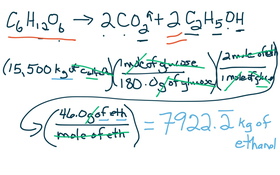 C₆H₁₂O₆ → 2CO₂↑ + 2 C₂H₅OH
(15,500 kg of glucose)(1 mole of glucose / 180.0g of glucose)(2 mole of eth / 1 mole of gluc)
(46.0g of eth / mole of eth) = 7922.2̅ kg of
ethanol